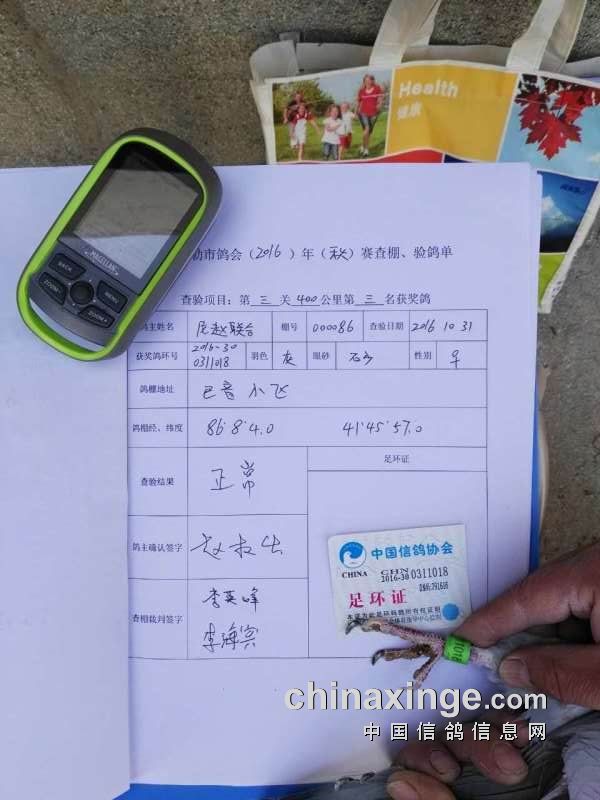 Health
健康
MAGELLAN
BACK
MENU
ZOOM-
ZOOM+
勒市鸽会(2016)年(秋)赛查棚、验鸽单
查验项目:第 三 关 400 公里第 三 名获奖鸽
鸽主姓名 越联合 棚号 000086 查验日期 2016 10 31
获奖鸽环号 2016-30 0311018 羽色 灰 眼砂 石砂 性别 ♀
鸽棚地址 巴音 小飞
鸽棚经、纬度 86°8'4.0 41°45'57.0
查验结果 正常
足环证
鸽主确认签字 赵
查棚裁判签字 李英峰
李海宾
中国信鸽协会
CHINA CHN
2016-30 0311018
足环证
1018
chinaxinge.com
中国信鸽信息网